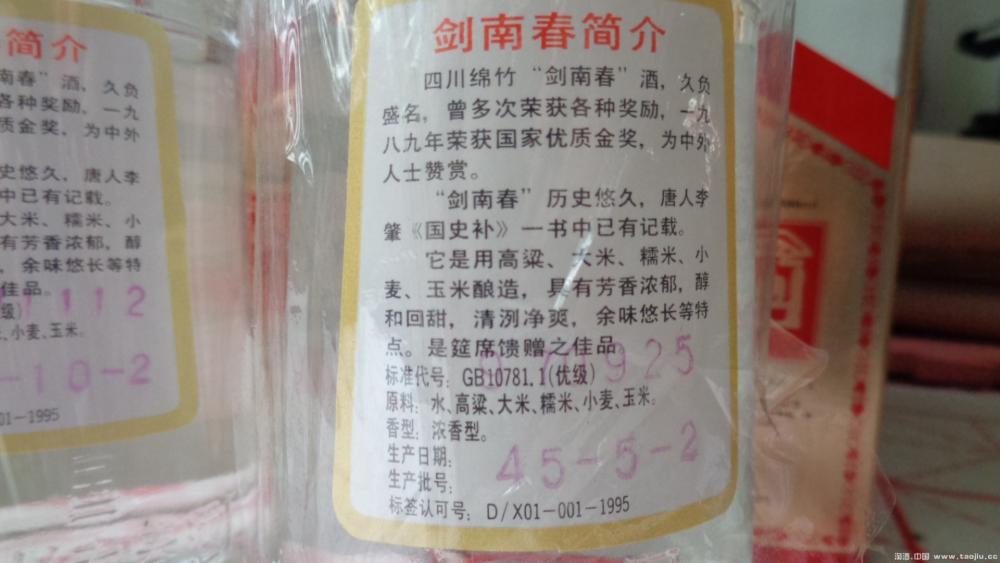 简介
南春”酒，久负
各种奖励，一九
质金奖，为中外
史悠久，唐人李
中已有记载。
大米、糯米、小
有芳香浓郁，醇
，余味悠长等特
佳品。
1112
、小麦、玉米.
-10-2
01-1995
剑南春简介
四川绵竹“剑南春”酒，久负
盛名，曾多次荣获各种奖励，一九
八九年荣获国家优质金奖，为中外
人士赞赏。
“剑南春”历史悠久，唐人李
肇《国史补》一书中已有记载。
它是用高粱、大米、糯米、小
麦、玉米酿造，具有芳香浓郁，醇
和回甜，清洌净爽，余味悠长等特
点。是筵席馈赠之佳品
925
标准代号：GB10781.1(优级)
原料：水、高粱、大米、糯米、小麦、玉米。
香型：浓香型。
生产日期：
45-5-2
生产批号：
标签认可号：D/X01-001-1995
淘酒.中国 www.taojiu.cc